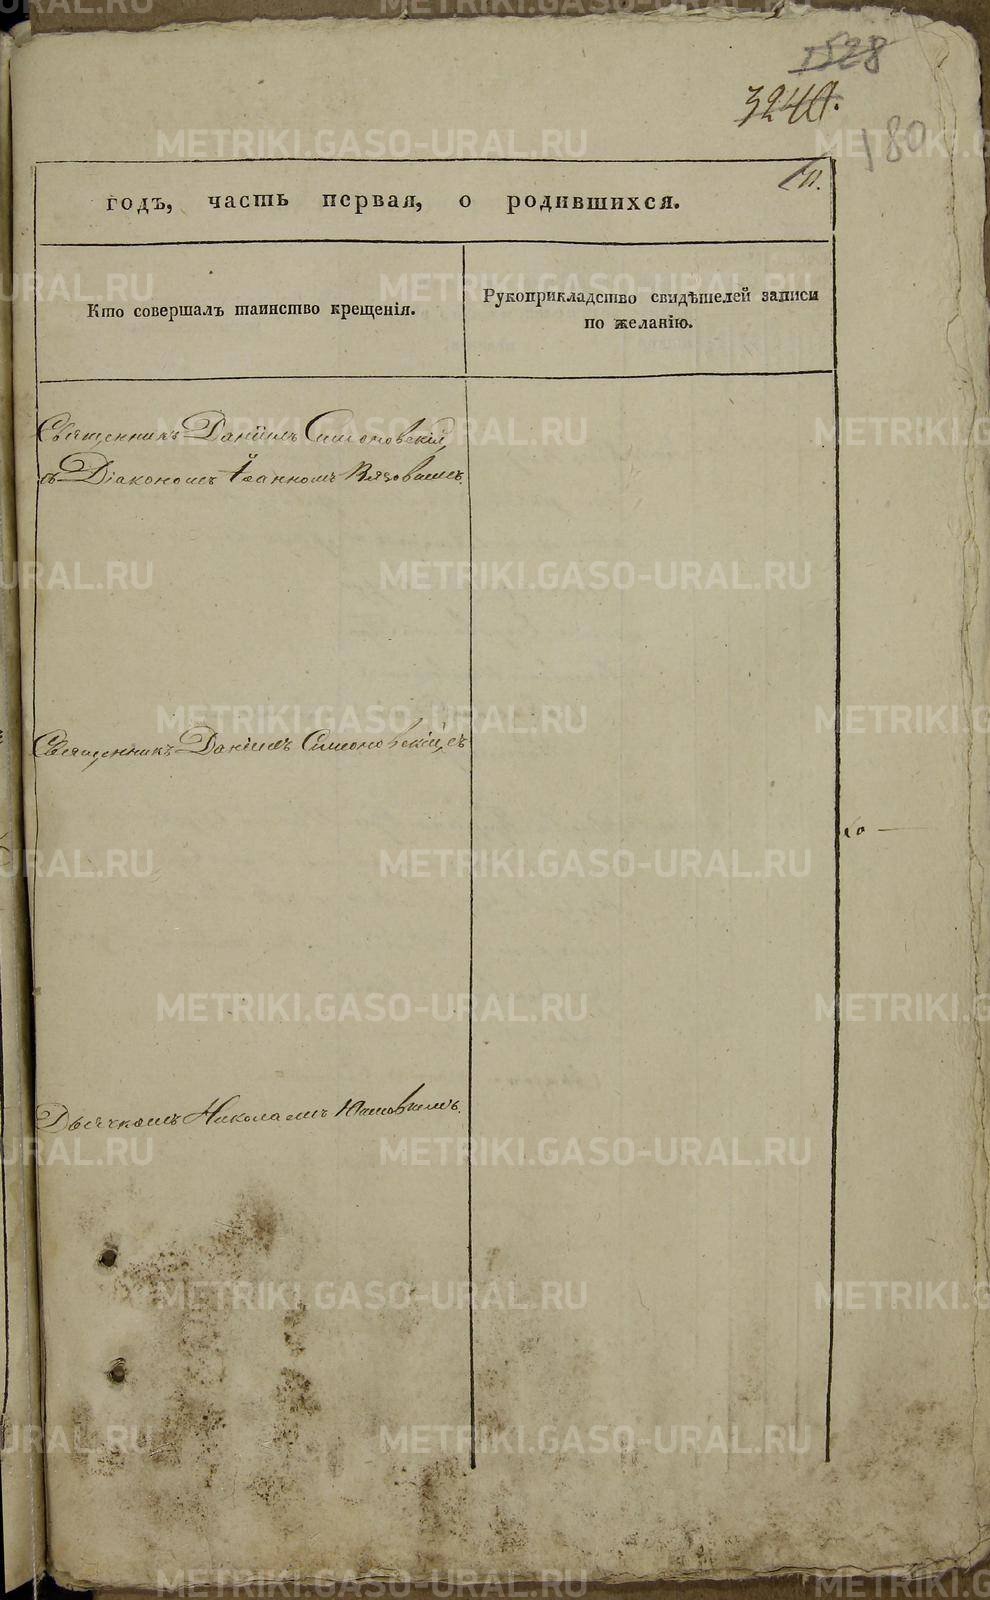 1528
3240.
180
годъ, часть первая, о родившихся.
Кто совершалъ таинство крещенія.
Рукоприкладство свидѣтелей записи
по желанію.
Священникъ Даніилъ Симоновскій,
съ Діакономъ Іоанномъ
Священникъ Даніилъ Симоновскій, съ
Дьячкомъ Николаемъ
METRIKI.GASO-URAL.RU